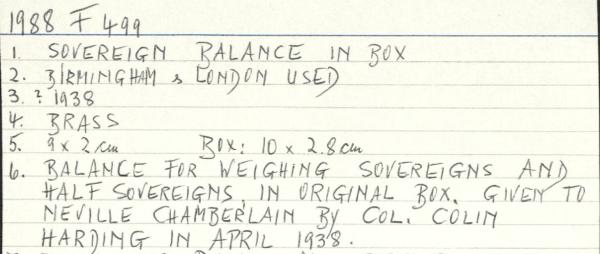 1988 F 499
1. SOVEREIGN BALANCE IN BOX
2. BIRMINGHAM & LONDON USED
3. ? 1938
4. BRASS
5. 9 x 2 cm BOX: 10 x 2.8 cm
6. BALANCE FOR WEIGHING SOVEREIGNS AND
HALF SOVEREIGNS, IN ORIGINAL BOX. GIVEN TO
NEVILLE CHAMBERLAIN BY COL. COLIN
HARDING IN APRIL 1938.